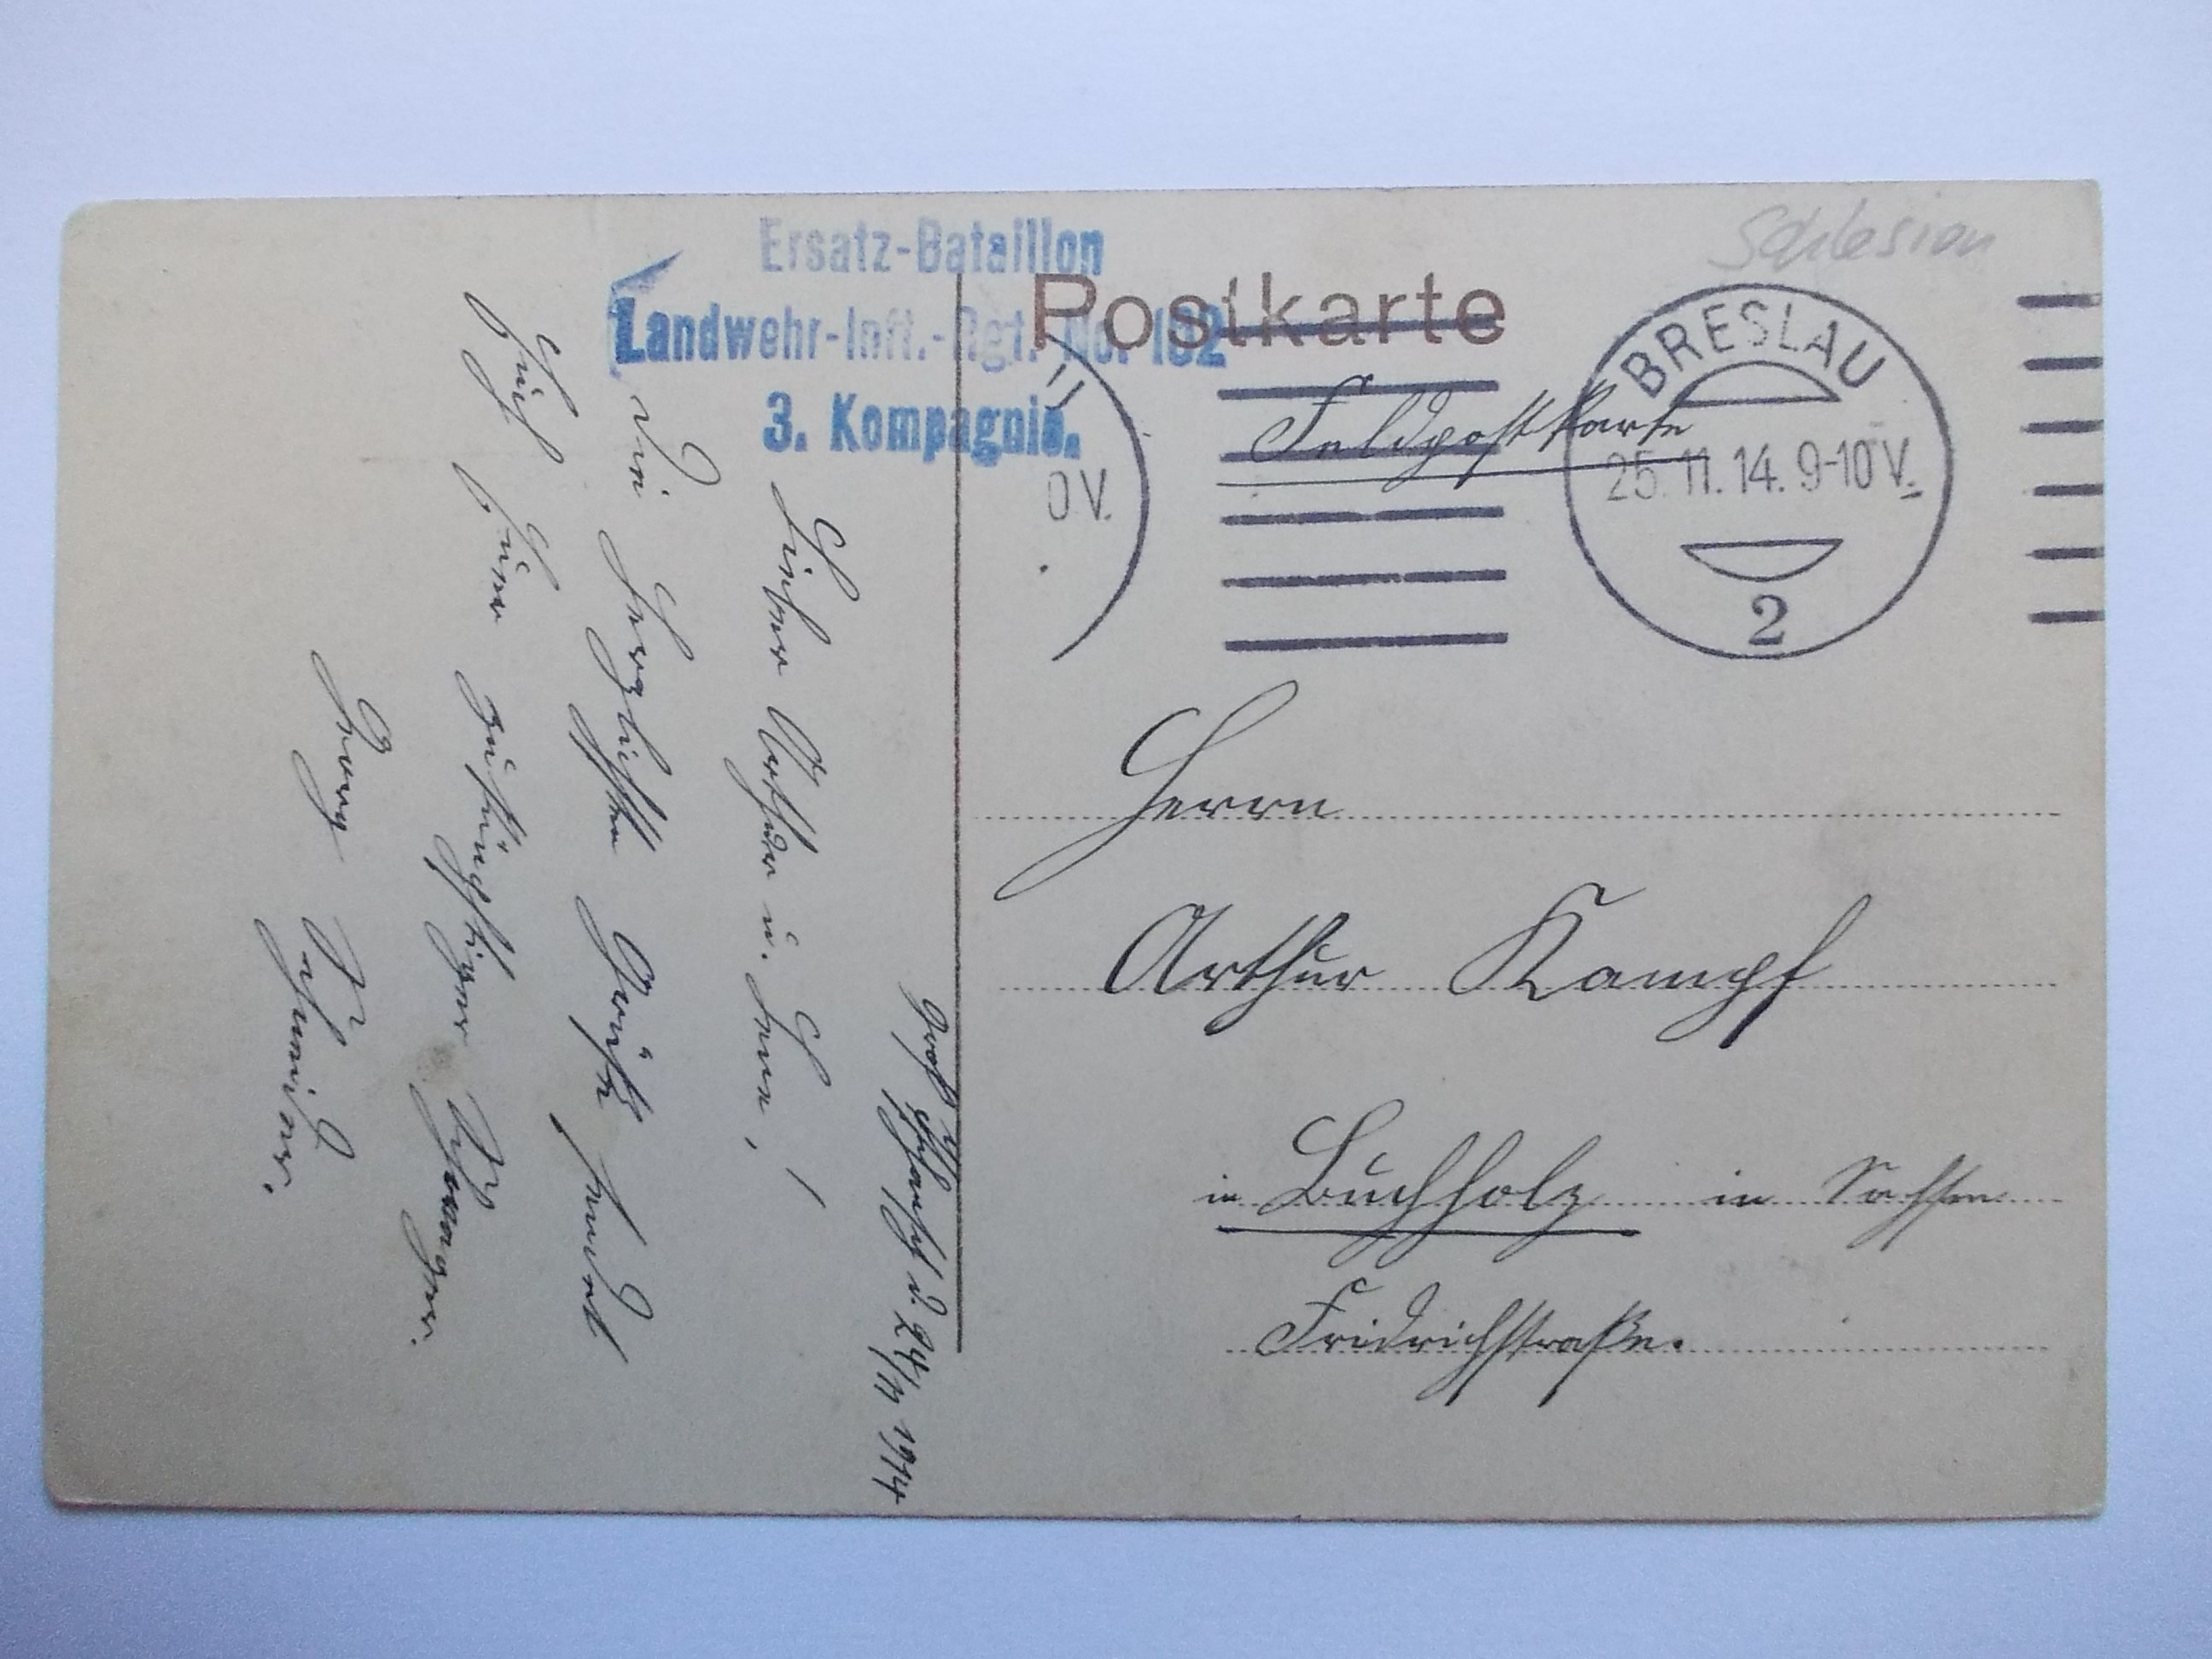 Schlesien
Ersatz-Bataillon
Landwehr-Inft.-Rgt. No.
3. Kompagnie.
Postkarte
Feldpostkarte
BRESLAU
25.11.14. 9-10 V.
2
0 V.
Herrn
Arthur Kampf
in Buchholz in Sachsen
Friedrichstraße.
Groß Tschansch d. 24/11 1914
Lieber Arthur u. Lene, !
Die herzlichsten Grüße sendet
Euch Euer zukünftiger Schwager.
Georg